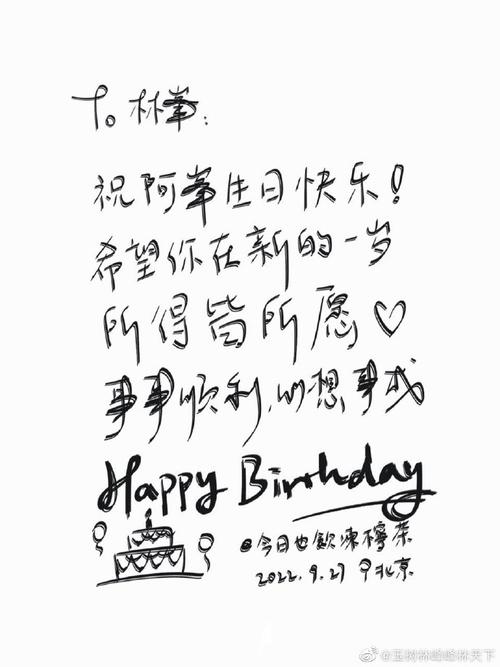 To 林峯：
祝阿峯生日快乐！
希望你在新的一岁
所得皆所愿♡
事事顺利，心想事成
Happy Birthday
@今日也飲凍檸茶
2022.9.27 北京
@玉树林峰峰林天下